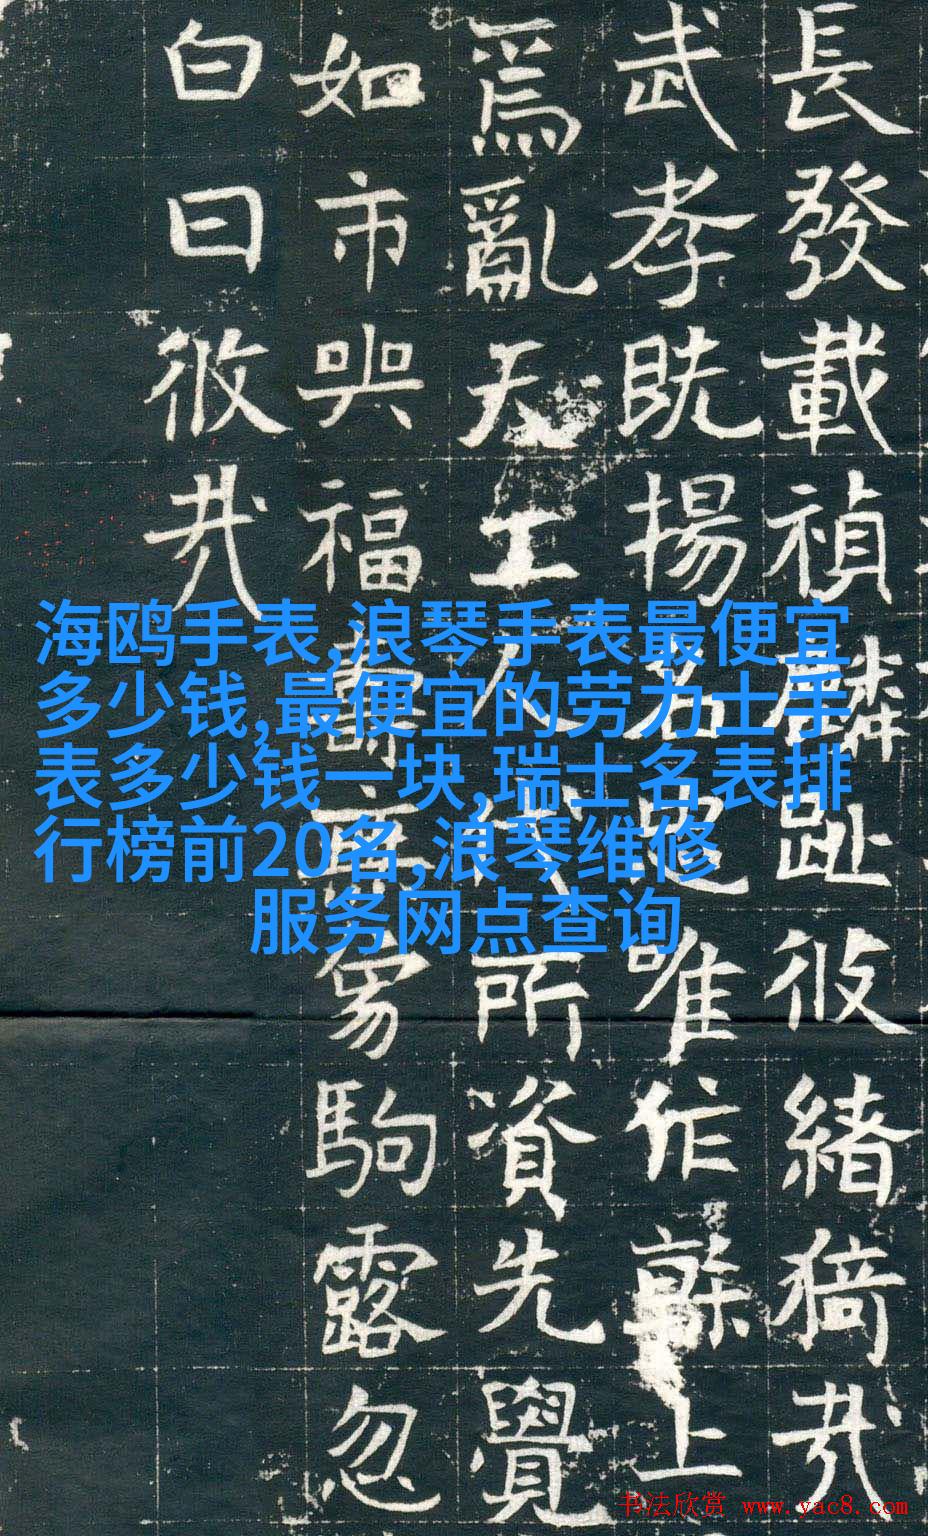 長發載禎麟趾攸緒猗哉
武孝旣揚名唯作上
爲亂天工人代所資先覺
如市與福駒露忽
白日攸哉
海鸥手表,浪琴手表最便宜
多少钱,最便宜的劳力士手
表多少钱一块,瑞士名表排
行榜前20名,浪琴维修
服务网点查询
书法欣赏 www.yac8.com